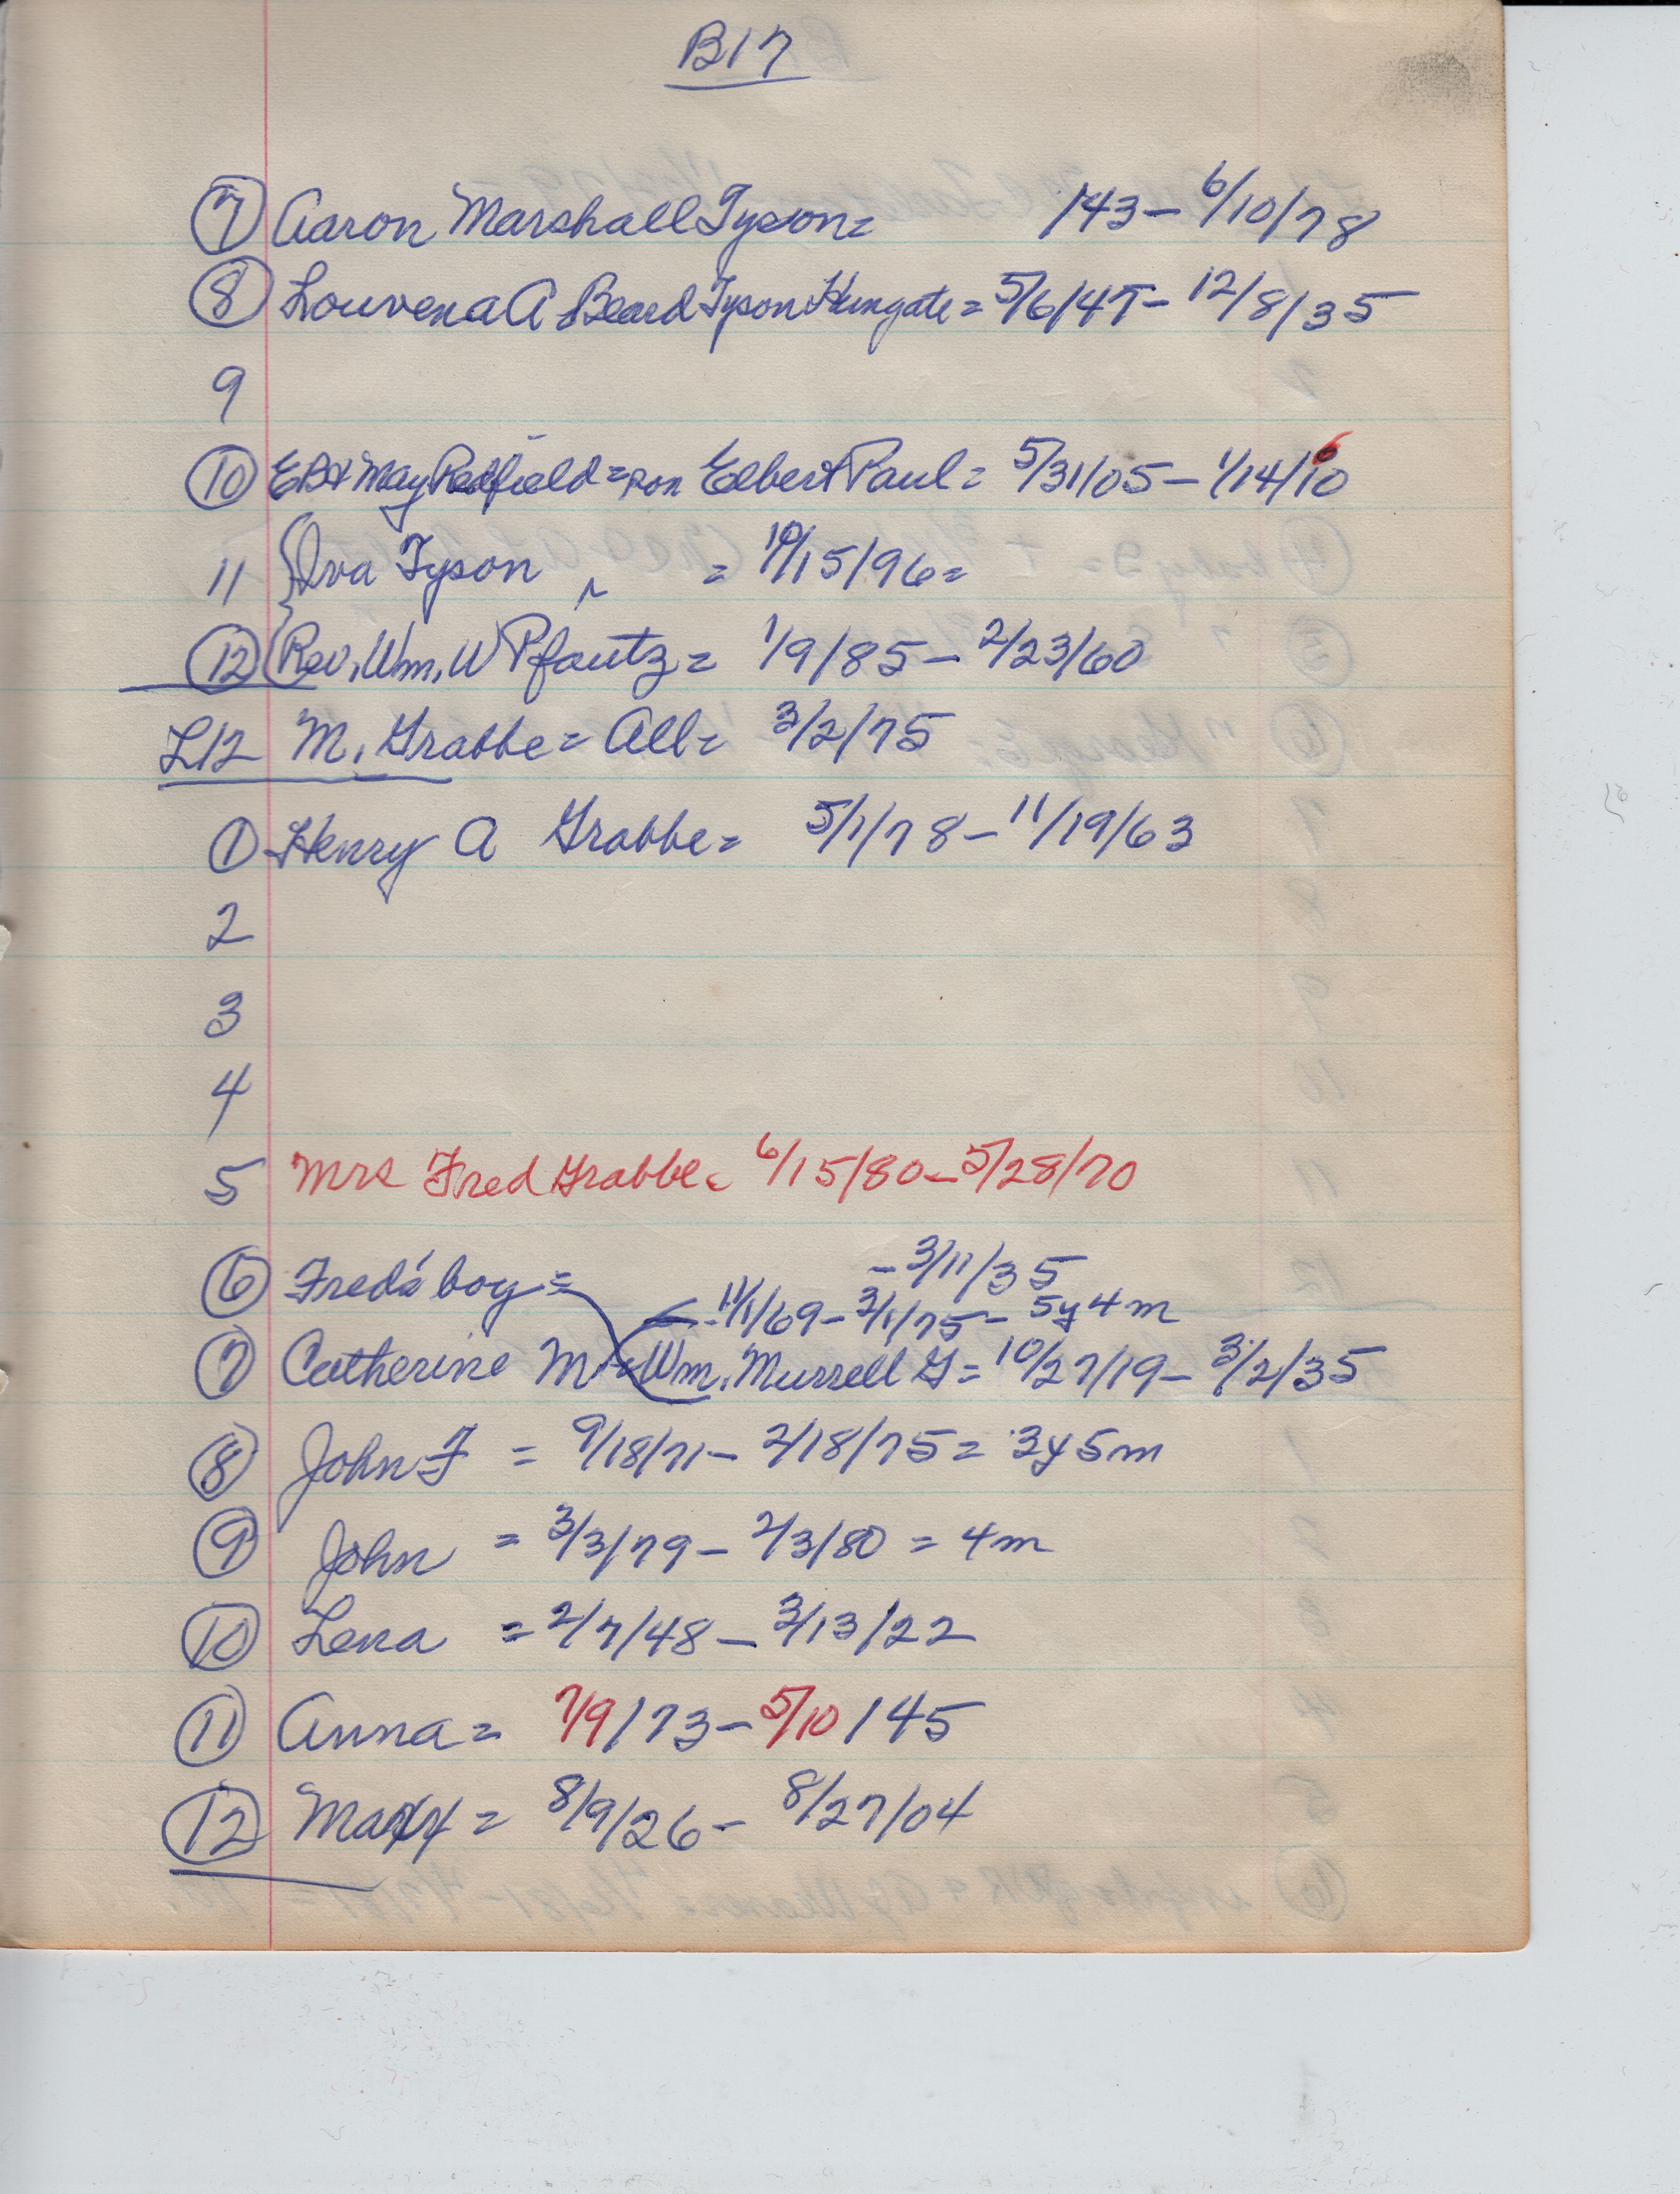 B17
7 Aaron Marshall Tyson= /43- 6/10/78
8 Louvena A Beard Tyson Hungate = 5/6/47- 12/8/35
9
10 May Redfield = son Elbert Paul = 5/31/05- 1/14/10 6
11 Iva Tyson = 10/15/96=
12 Rev. Wm. W Pfoutz = 1/9/85- 2/23/60
L12 M. Grabbe= All= 3/2/75
1 Henry A Grabbe= 5/1/78- 11/19/63
2
3
4
5 Mrs Fred Grabbe= 6/15/80- 5/28/70
6 Fred's boy = - 3/11/35
11/1/69- 3/1/75- 5y4m
7 Catherine M Wm. Murrell G= 10/27/19- 3/2/35
8 John F = 9/18/71- 2/18/75= 3y5m
9 John = 3/3/79- 2/3/80 = 4m
10 Lena = 2/7/48- 3/13/22
11 Anna= 7/9/73- 5/10/45
12 = 8/9/26- 8/27/04